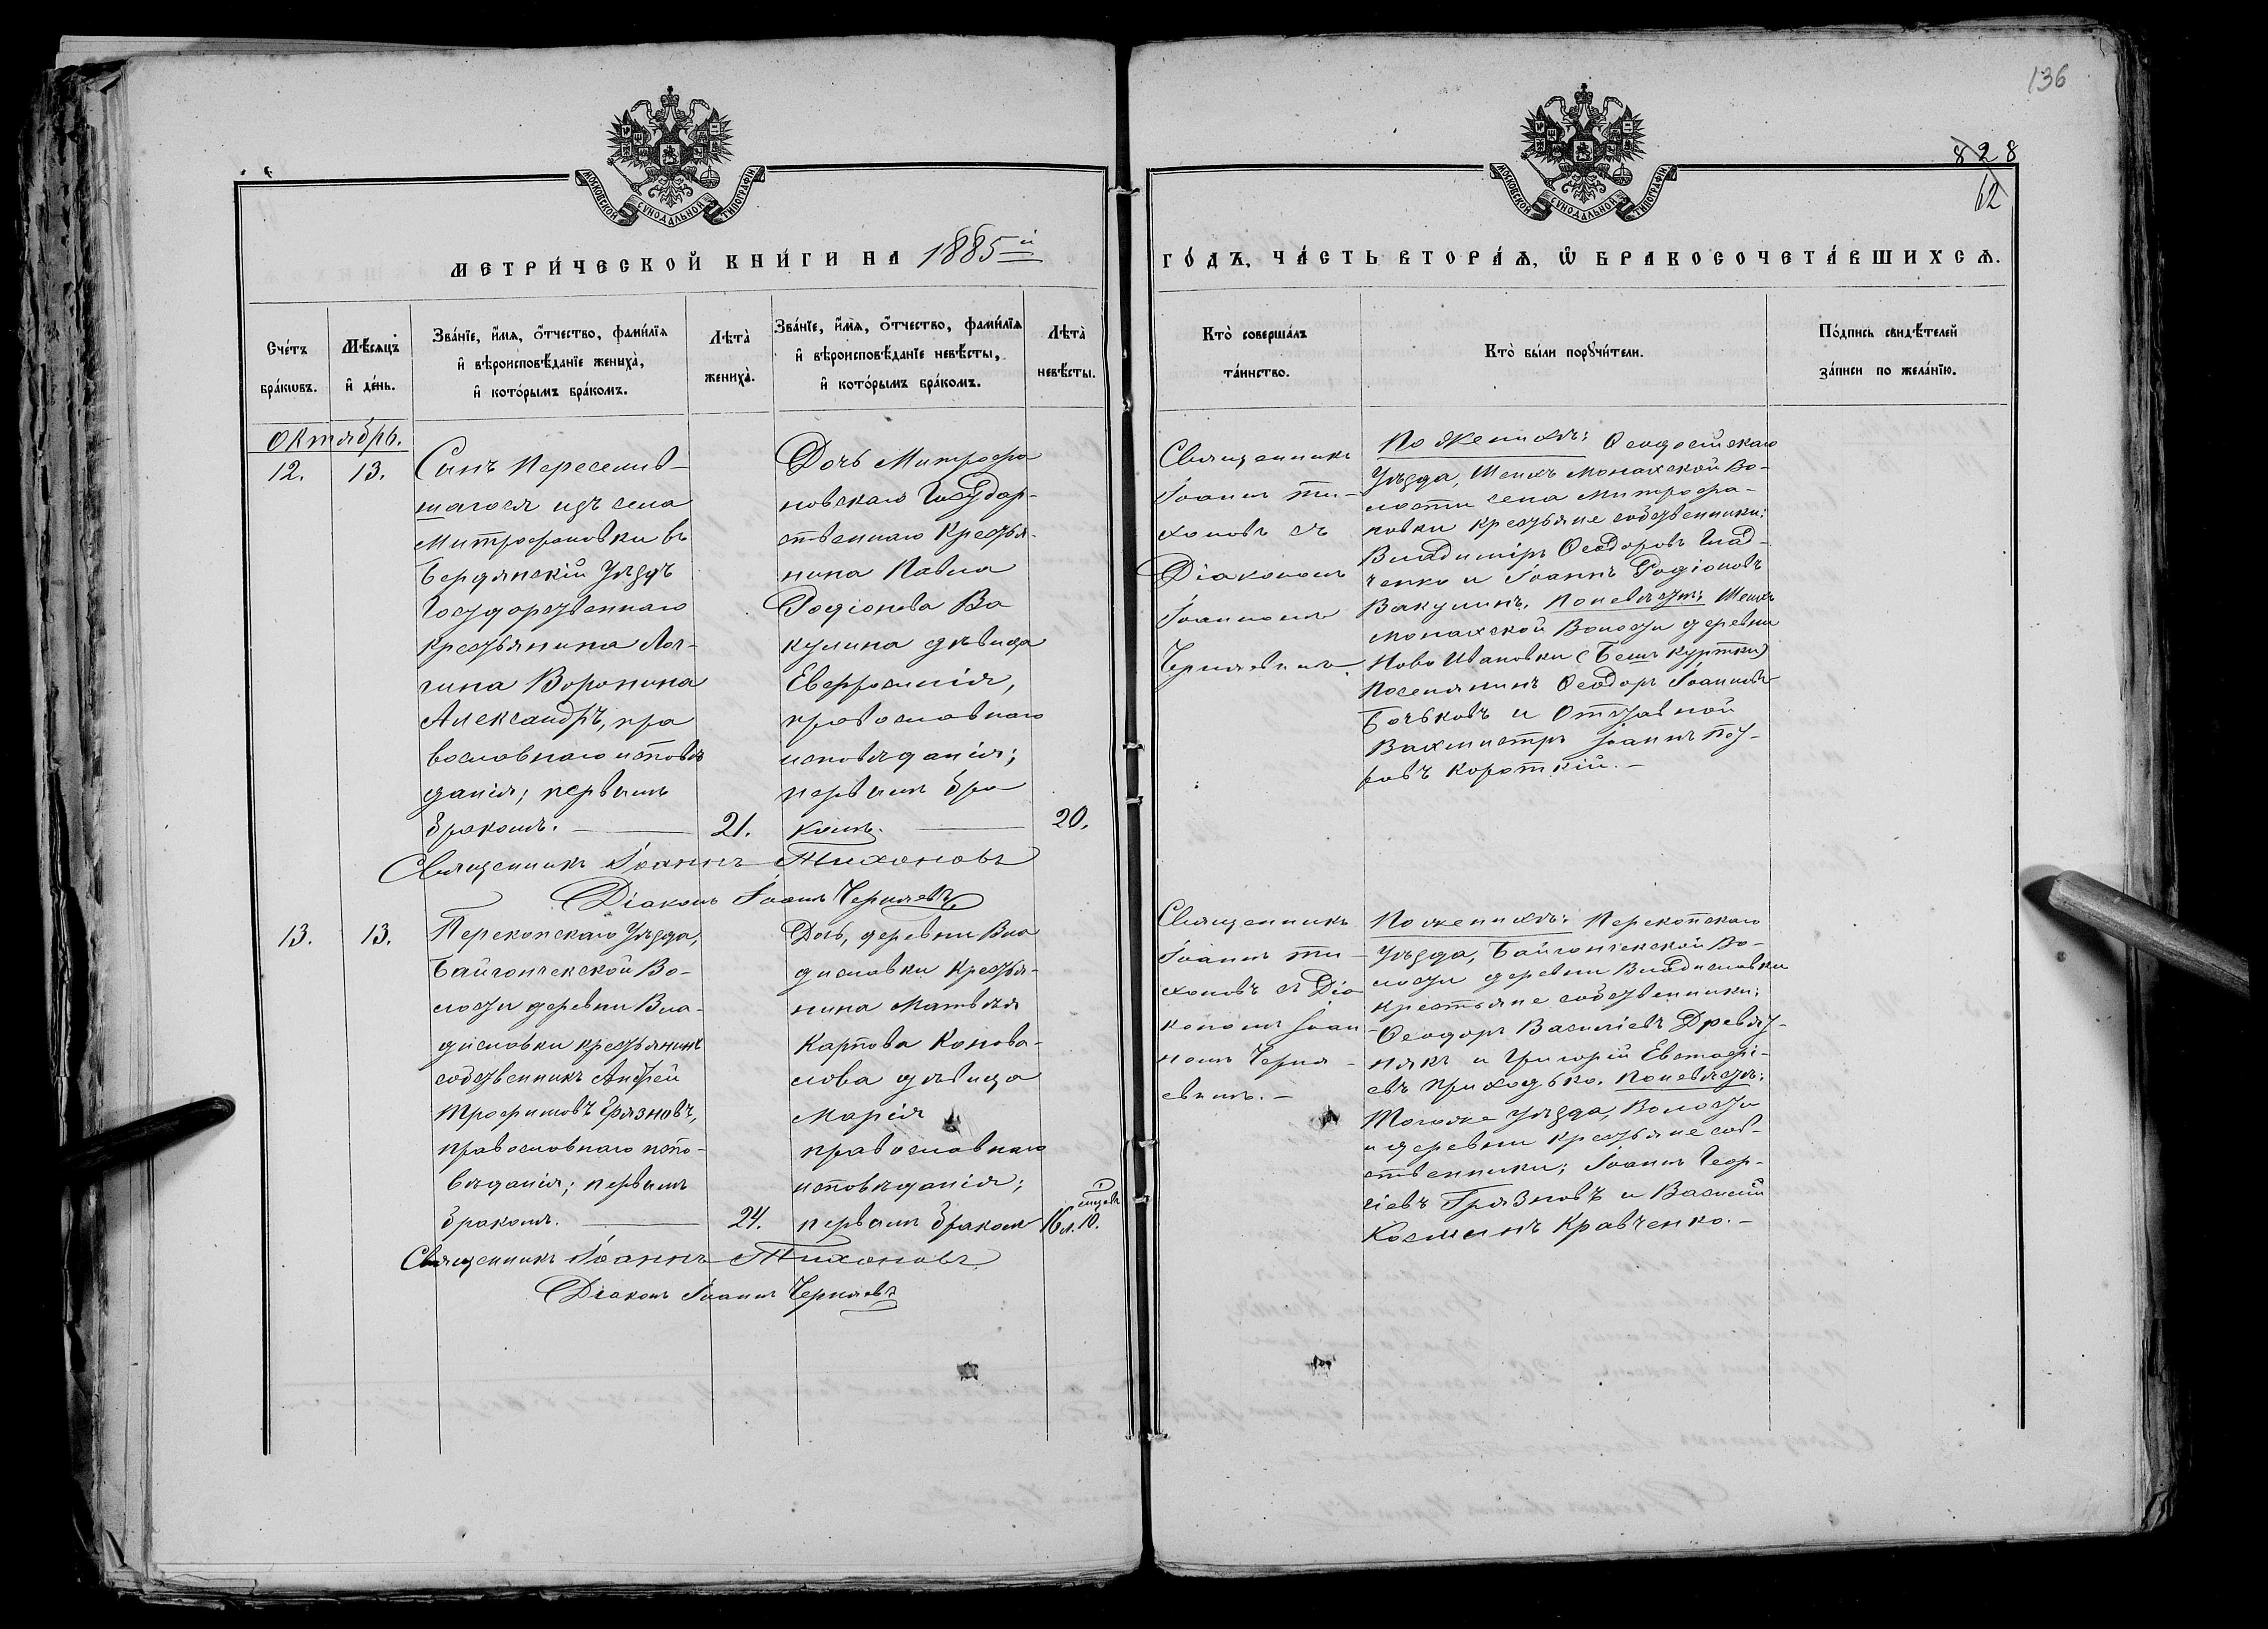 136
828
62
МОСКОВСКОЙ СѴНОДАЛЬНОЙ ТИПОГРАФІИ
МОСКОВСКОЙ СѴНОДАЛЬНОЙ ТИПОГРАФІИ
МЕТРИ́ЧЕСКОЙ КНИ́ГИ НА 1885й
ГО́ДЪ, ЧА́СТЬ ВТОРА́Ѧ, Ѽ БРАКОСОЧЕТА́ВШИХСѦ.
Сче́тъ
бра́кѡвъ.
Мѣ́сяцъ
и҆ де́нь.
Зва́нїе, и҆́мѧ, о҆́тчество, фами́лїѧ
и҆ вѣроисповѣ́данїе жениха̀,
и҆ кото́рымъ бра́комъ.
Лѣта̀
жениха̀.
Зва́нїе, и҆́мѧ, о҆́тчество, фами́лїѧ
и҆ вѣроисповѣ́данїе невѣ́сты,
и҆ кото́рымъ бра́комъ.
Лѣта̀
невѣ́сты.
Кто̀ соверша́лъ
та́инство.
Кто̀ бы́ли порꙋчи́тели.
По́дпись свидѣ́телей
за́писи по жела́нїю.
Октябрь.
12.
13.
Сынъ Переселив-
шагося изъ села
Митрофановки въ
Бердянскій Уѣздъ
Государственнаго
крестьянина Лог-
гина Воронина
Александръ, пра
вославнаго исповѣ
данія; первымъ
бракомъ.
21.
Дочь Митрофа
новскаго Государ-
ственнаго Крестья-
нина Павла
Родіонова Ва
кулина дѣвица
Евфросинія,
православнаго
исповѣданія;
первымъ бра
комъ.
20.
Священникъ
Іоаннъ Ти-
хоновъ съ
Діакономъ
Іоанномъ
Черняевымъ
По женихѣ: Ѳеодосійскаго
Уѣзда, Шейхъ Монахской Во-
лости села Митрофа-
новки крестьяне собственники:
Владиміръ Ѳеодоровъ Глад-
ченко и Іоаннъ Родіоновъ
Вакулинъ. По невѣстѣ: Шейхъ
Монахской Волости деревни
Ново Ивановки (Бешъ Куртки)
поселянинъ Ѳеодоръ Іоанновъ
Бочковъ и Отставной
Вахмистръ Іоаннъ Пет-
ровъ Короткій.-
Священникъ Іоаннъ Тихоновъ
Діаконъ Іоаннъ Черняевъ
13.
13.
Перекопскаго Уѣзда,
Байгончекской Во-
лости деревни Вла-
диславки крестьянинъ
собственникъ Андрей
Трофимовъ Грязновъ,
православнаго испо-
вѣданія; первымъ
бракомъ.
24.
Дочь, деревни Вла
диславки Крестья-
нина Матвѣя
Карпова Конова-
лова дѣвица
Марія
православнаго
исповѣданія;
первымъ бракомъ
16 л. 10.
Священникъ
Іоаннъ Ти-
хоновъ съ Діа
кономъ Іоан
номъ Черня-
евымъ.-
По женихѣ: Перекопскаго
Уѣзда, Байгончекской Во-
лости деревни Владиславки
крестьяне собственники:
Ѳеодоръ Василіевъ Древет-
някъ и Григорій Евстафі-
евъ Приходько. По невѣстѣ:
Тогоже уѣзда, Волости
и деревни крестьяне соб-
ственники; Іоаннъ Геор-
гіевъ Грязновъ и Василій
Косминъ Кравченко.-
Священникъ Іоаннъ Тихоновъ
Діаконъ Іоаннъ Черняевъ